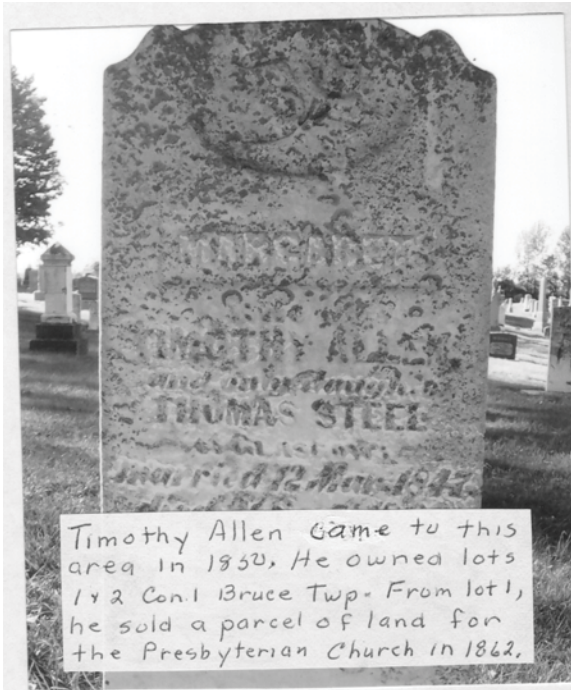 MARGARET
TIMOTHY ALLEN
and only daugh. of
THOMAS STEEL
married 12 Mar. 1847
Timothy Allen came to this
area in 1850. He owned lots
1 & 2 Con.1 Bruce Twp. From lot 1,
he sold a parcel of land for
the Presbyterian Church in 1862.